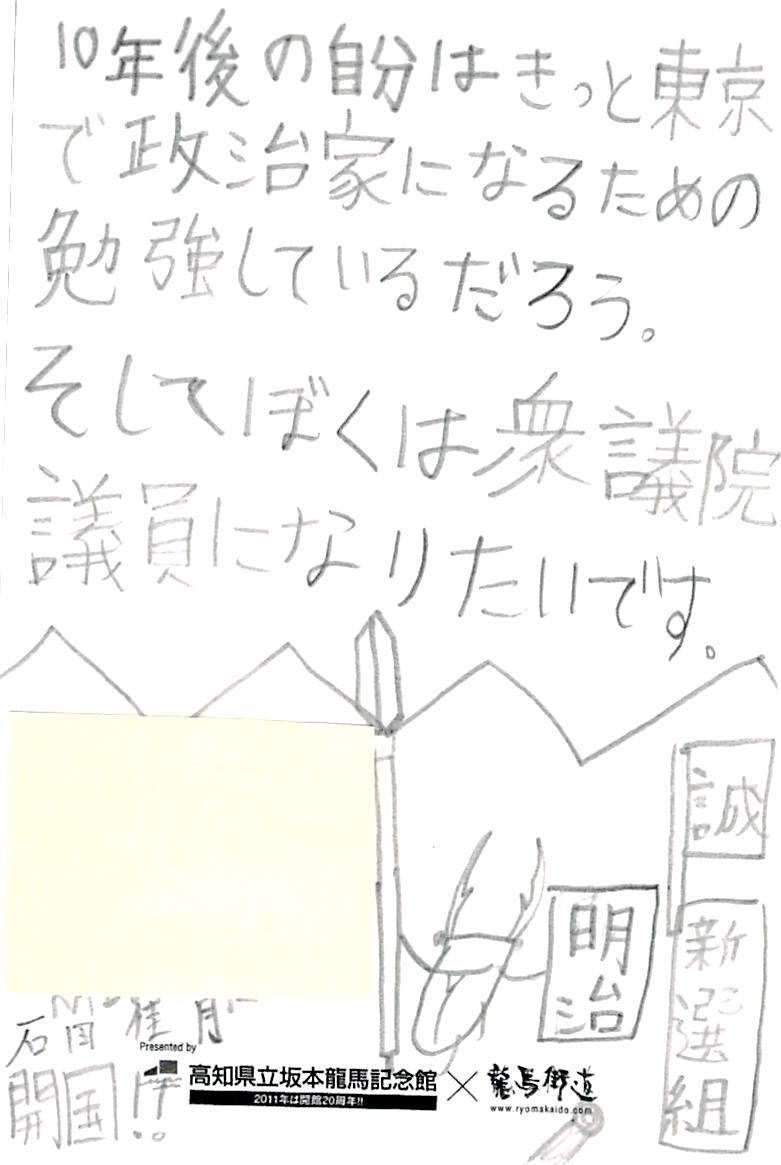 10年後の自分はきっと東京
で政治家になるための
勉強しているだろう。
そしてぼくは衆議院
議員になりたいです。
誠
明治
新選組
開国!!
Presented by
高知県立坂本龍馬記念館
2011年は開館20周年!!
×
龍馬街道
www.ryomakaido.com